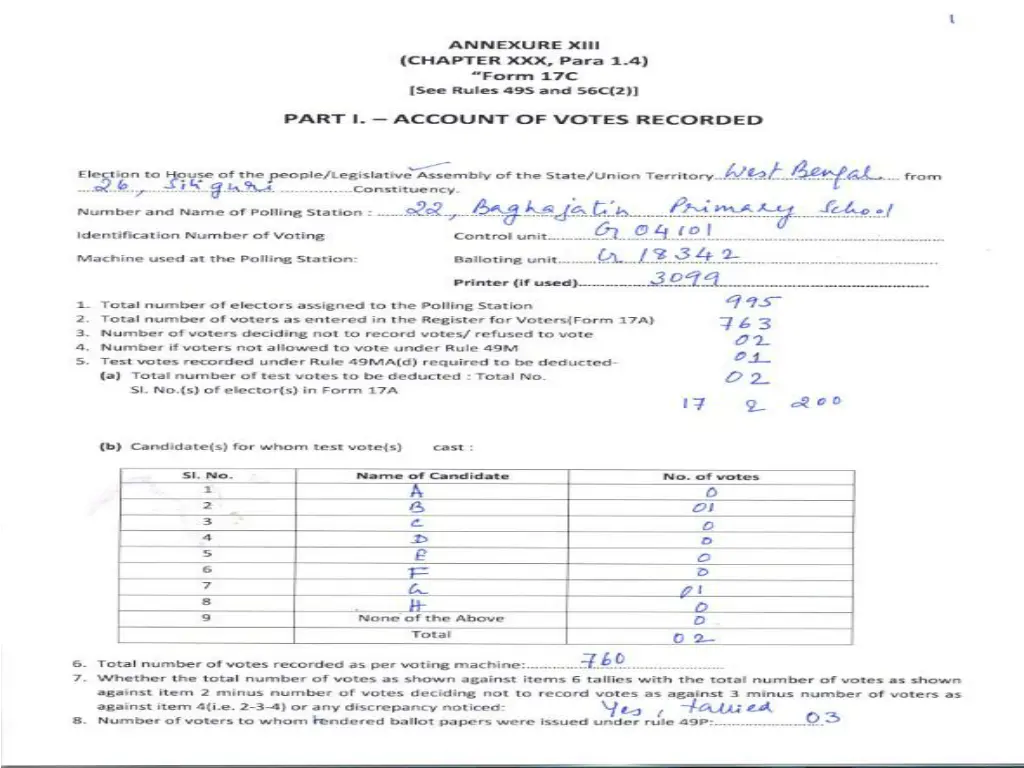 1
ANNEXURE XIII
(CHAPTER XXX, Para 1.4)
"Form 17C
[See Rules 49S and 56C(2)]
PART I. – ACCOUNT OF VOTES RECORDED
Election to House of the people/Legislative Assembly of the State/Union Territory West Bengal from
26, Siliguri Constituency.
Number and Name of Polling Station : 22, Baghajatin Primary School
Identification Number of Voting Control unit G 04101
Machine used at the Polling Station: Balloting unit G 18342
Printer (if used) 3099
1. Total number of electors assigned to the Polling Station 995
2. Total number of voters as entered in the Register for Voters(Form 17A) 763
3. Number of voters deciding not to record votes/ refused to vote 02
4. Number if voters not allowed to vote under Rule 49M 01
5. Test votes recorded under Rule 49MA(d) required to be deducted-
(a) Total number of test votes to be deducted : Total No. 02
Sl. No.(s) of elector(s) in Form 17A 17 & 200
(b) Candidate(s) for whom test vote(s) cast :
Sl. No. Name of Candidate No. of votes
1 A 0
2 B 01
3 C 0
4 D 0
5 E 0
6 F 0
7 G 01
8 H 0
9 None of the Above 0
Total 02
6. Total number of votes recorded as per voting machine: 760
7. Whether the total number of votes as shown against items 6 tallies with the total number of votes as shown
against item 2 minus number of votes deciding not to record votes as against 3 minus number of voters as
against item 4(i.e. 2-3-4) or any discrepancy noticed: Yes, tallied
8. Number of voters to whom tendered ballot papers were issued under rule 49P: 03